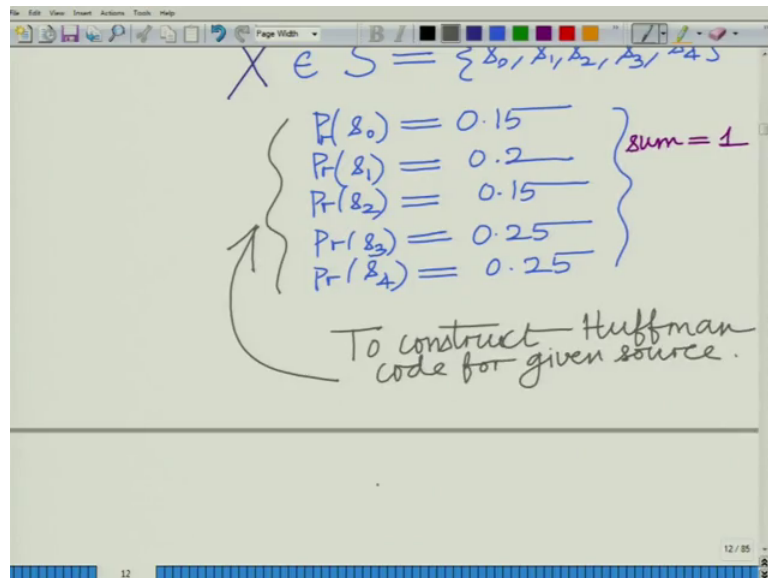 File Edit View Insert Actions Tools Help
Page Width B I
X ∈ S = {s₀, s₁, s₂, s₃, s₄}
Pr(s₀) = 0.15
Pr(s₁) = 0.2
Pr(s₂) = 0.15
Pr(s₃) = 0.25
Pr(s₄) = 0.25
sum = 1
To construct Huffman
code for given source.
12 / 85
12